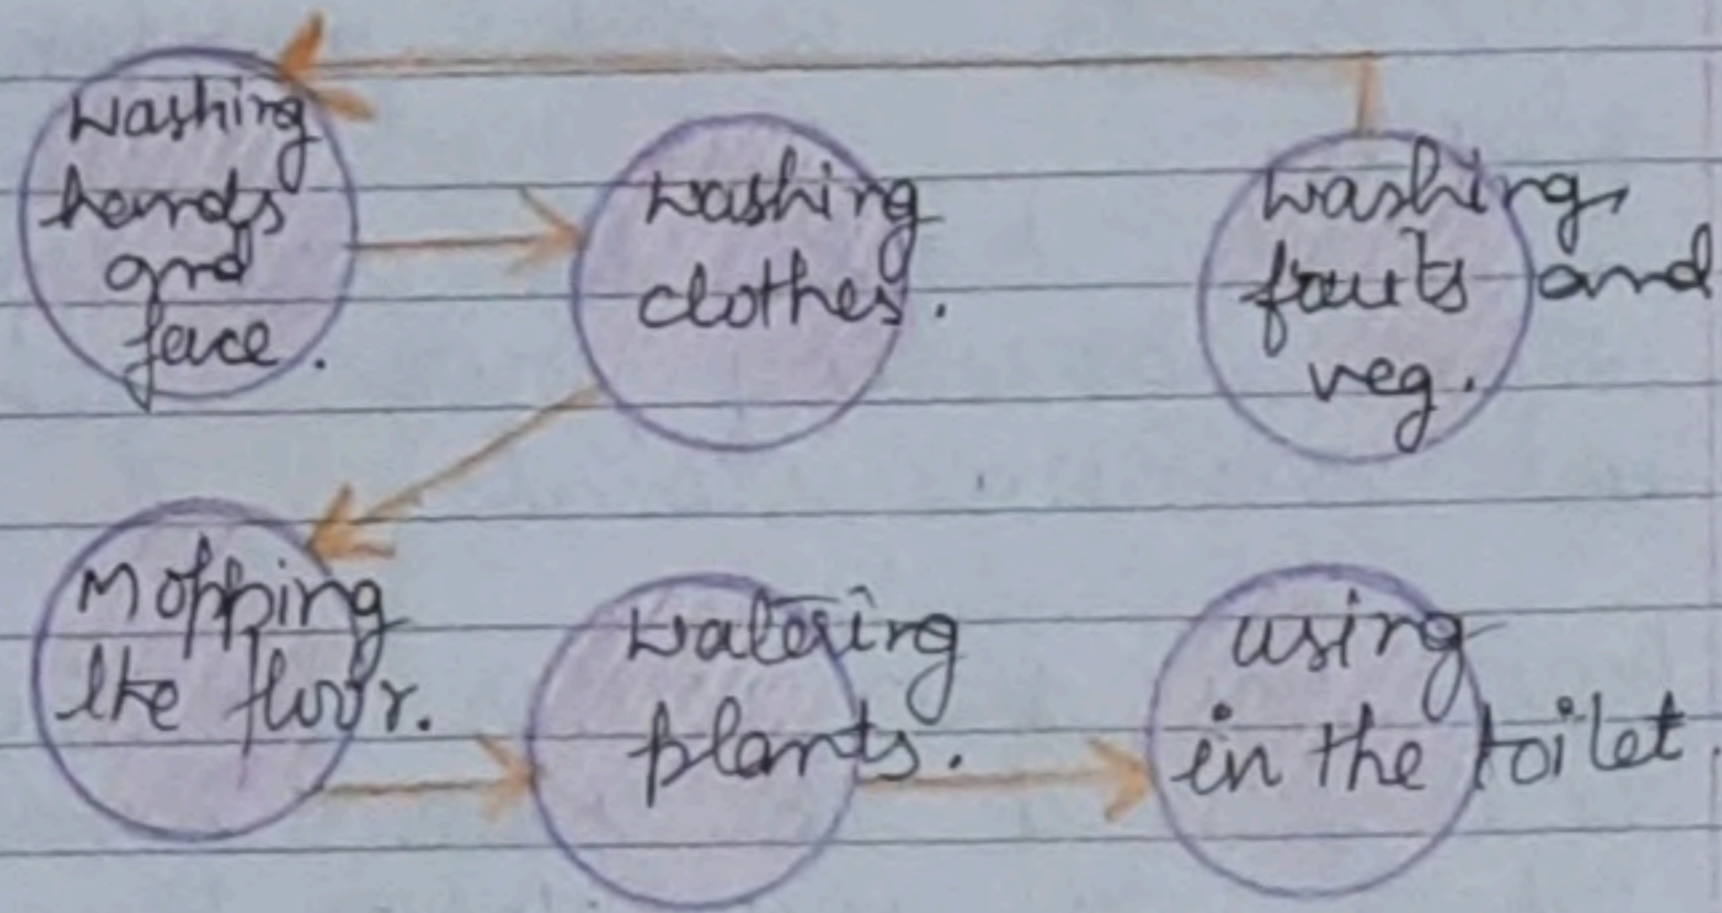 washing
hands
and
face.
washing
clothes.
washing
fruits and
veg.
Mopping
the floor.
watering
plants.
using
in the toilet.